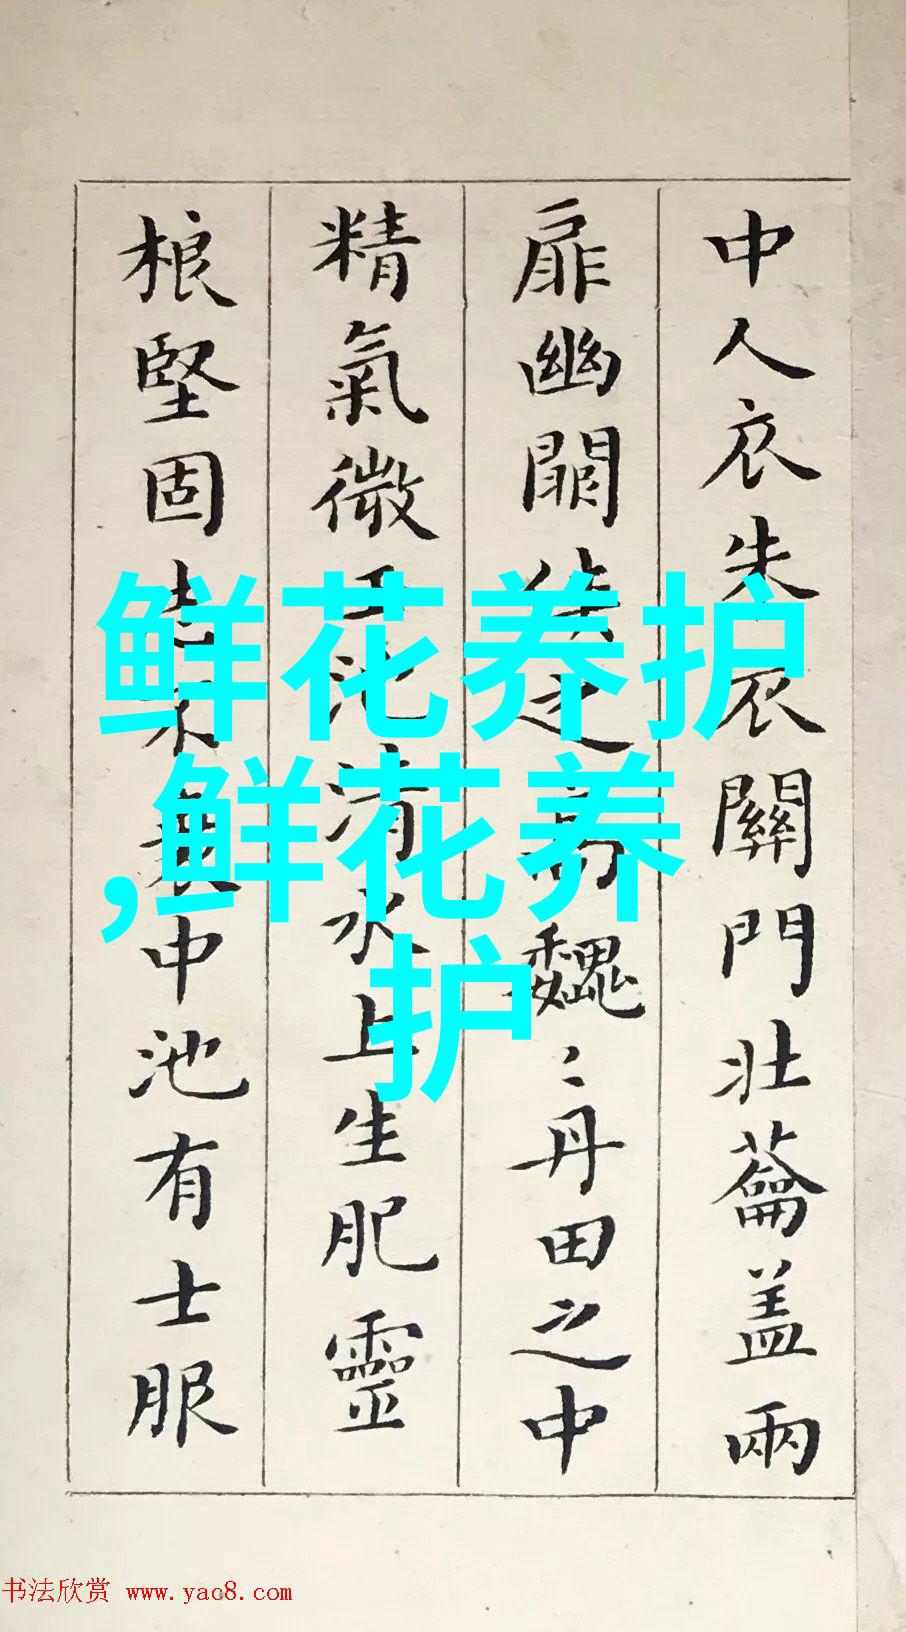 中人衣朱衣關門壯蘥盖兩
扉幽闗之高巍〻丹田之中
精氣微玉池清水上生肥靈
根堅固志不衰中池有士服
鲜花养护
,鲜花养
护
书法欣赏 www.yac8.com